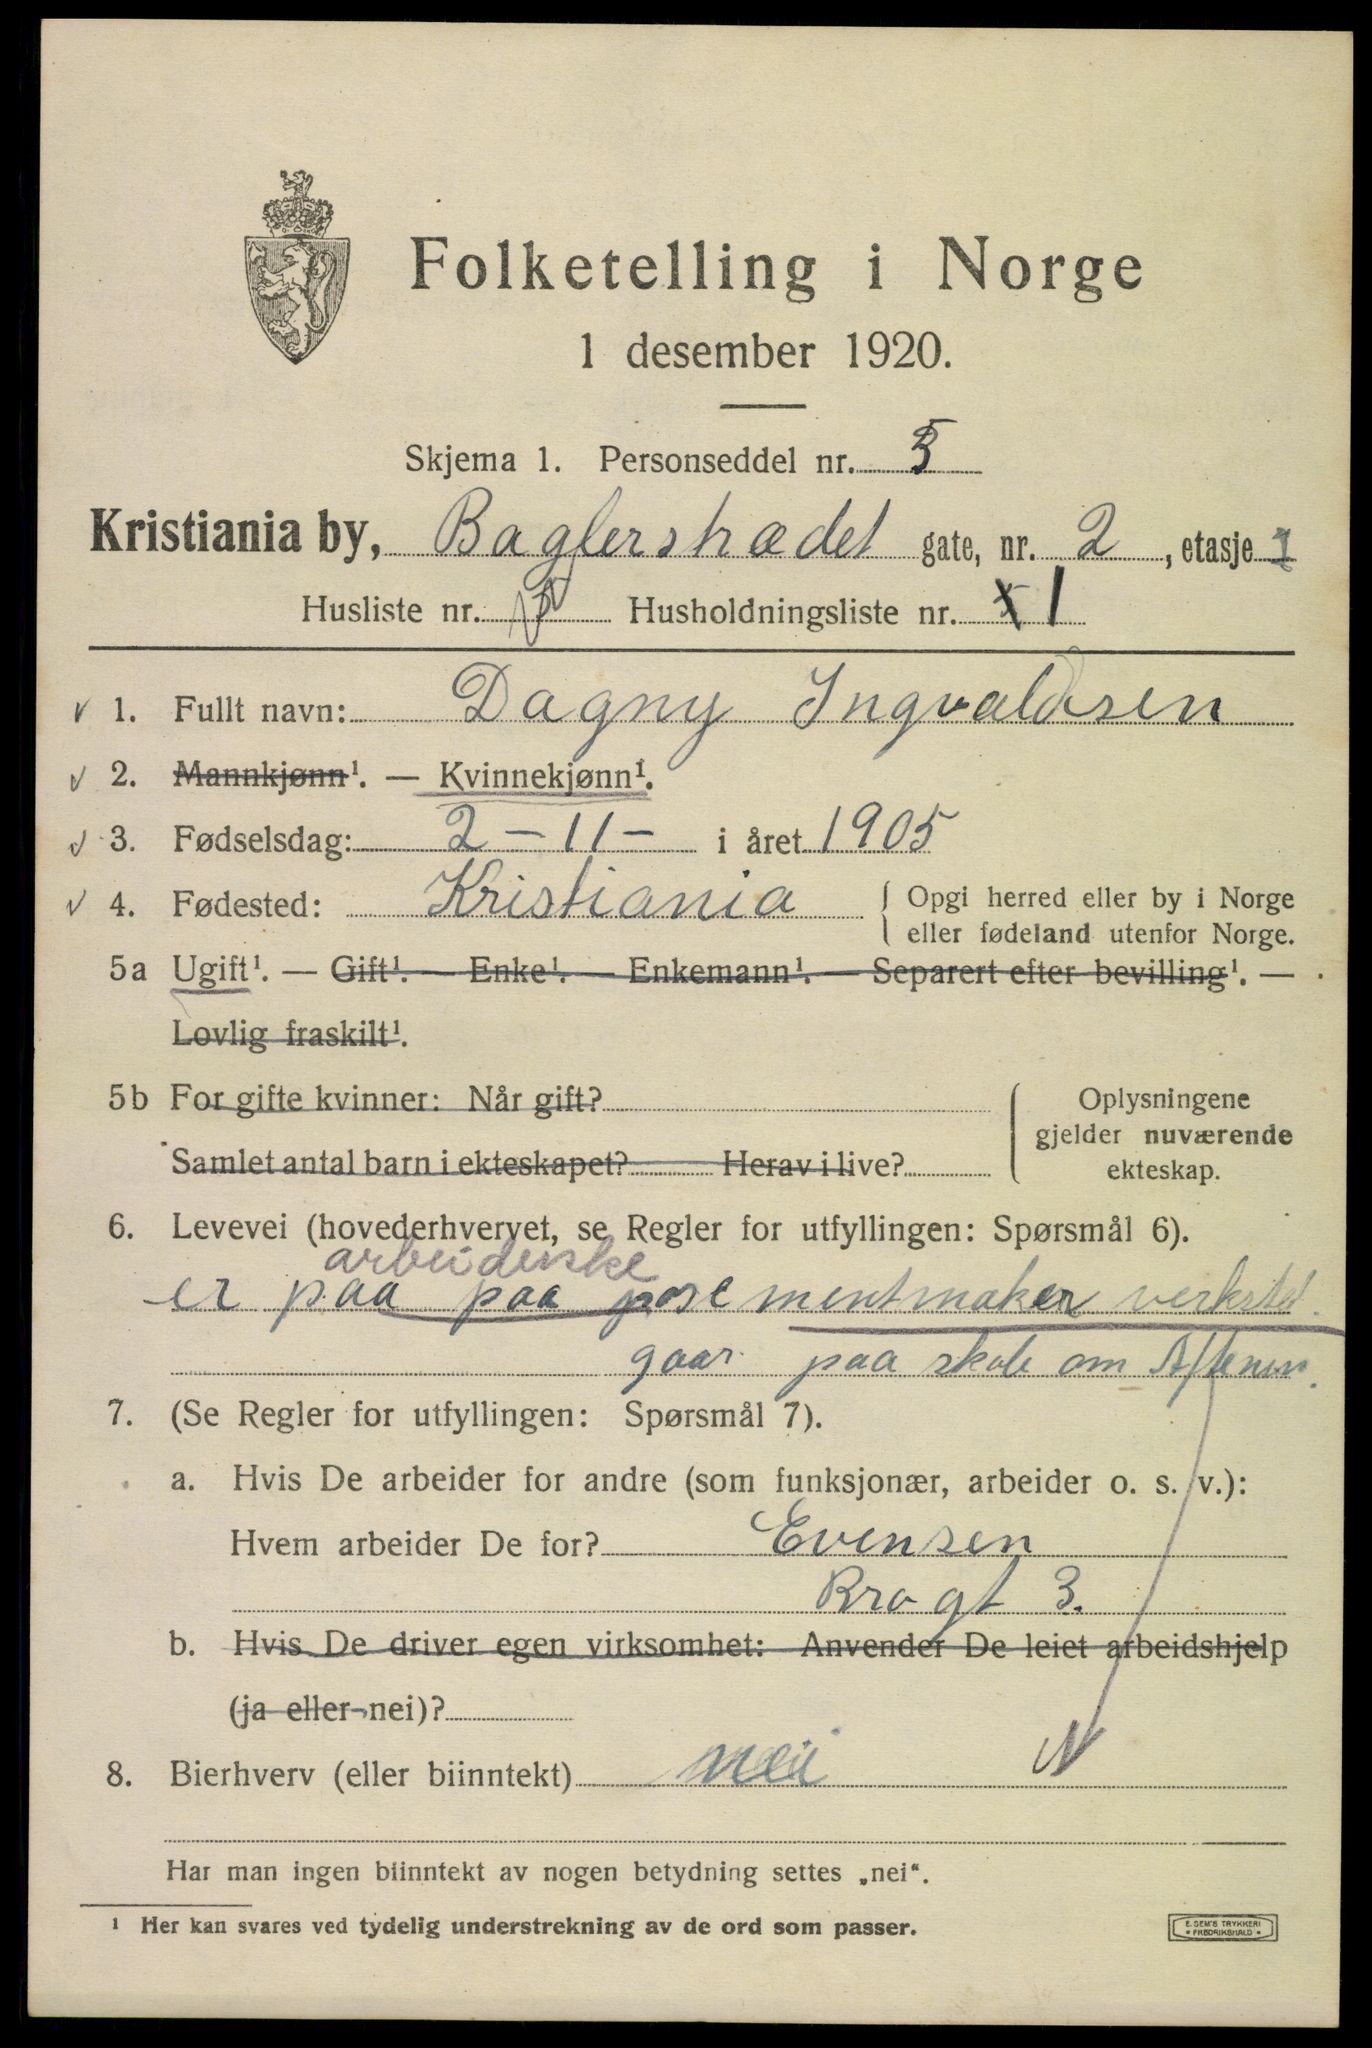 Folketelling i Norge
1 desember 1920.
Skjema 1. Personseddel nr. 3
Kristiania by, Baglerstrædet gate, nr. 2, etasje 1
Husliste nr. Husholdningsliste nr. 1
1. Fullt navn: Dagny Ingvaldsen
2. Mannkjønn¹. — Kvinnekjønn¹.
3. Fødselsdag: 2 - 11 - i året 1905
4. Fødested: Kristiania { Opgi herred eller by i Norge
eller fødeland utenfor Norge.
5a Ugift¹. — Gift¹. — Enke¹. — Enkemann¹. — Separert efter bevilling¹. —
Lovlig fraskilt¹.
5b For gifte kvinner: Når gift?
Samlet antal barn i ekteskapet? Herav i live?
Oplysningene
gjelder nuværende
ekteskap.
6. Levevei (hovederhvervet, se Regler for utfyllingen: Spørsmål 6).
arbeiderske
er paa paa posementmaker verksted.
gaar paa skole om Aftenen.
7. (Se Regler for utfyllingen: Spørsmål 7).
a. Hvis De arbeider for andre (som funksjonær, arbeider o. s. v.):
Hvem arbeider De for? Evensen
Brogt 3.
b. Hvis De driver egen virksomhet: Anvender De leiet arbeidshjelp
(ja eller nei)?
8. Bierhverv (eller biinntekt) nei N
Har man ingen biinntekt av nogen betydning settes „nei“.
¹ Her kan svares ved tydelig understrekning av de ord som passer.
E. SEM'S TRYKKERI
* FREDRIKSHALD *